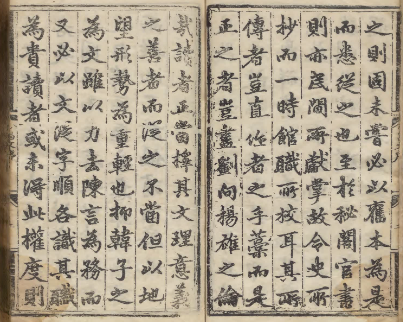 之則固未嘗必以舊本為是
而悉從之也至於秘閣官書
則亦民間所獻掌故令史所
抄而一時館職所校耳其所
傳者豈直作者之手藁而是
正之者豈盡劉向楊雄之倫
哉讀者正當擇其文理意義
之善者而從之不當但以地
望形勢為重輕也抑韓子之
為文雖以力去陳言為務而
又必以文從字順各識其職
為貴讀者或未得此權度則